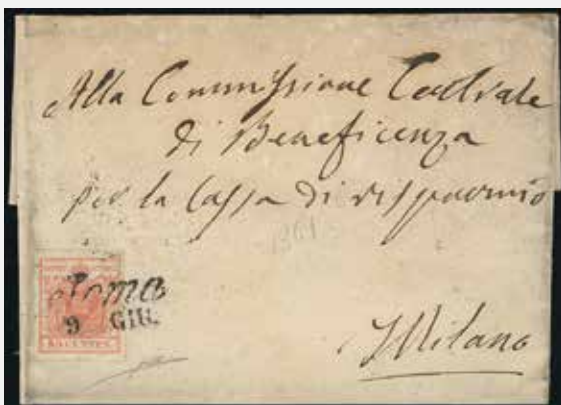 Alla Commissione Centrale
di Beneficenza
per la Cassa di risparmio
1851
Como
9 GIU.
Milano